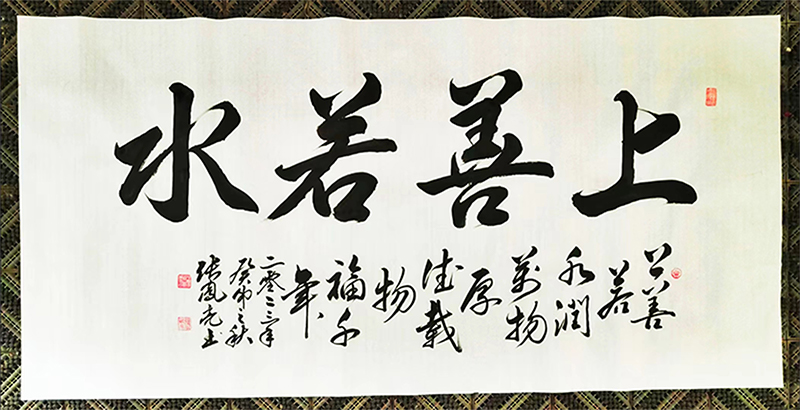 上善若水
上善
若
水潤
萬物
厚
德載
物
福千
年
二零二三年
癸卯之秋